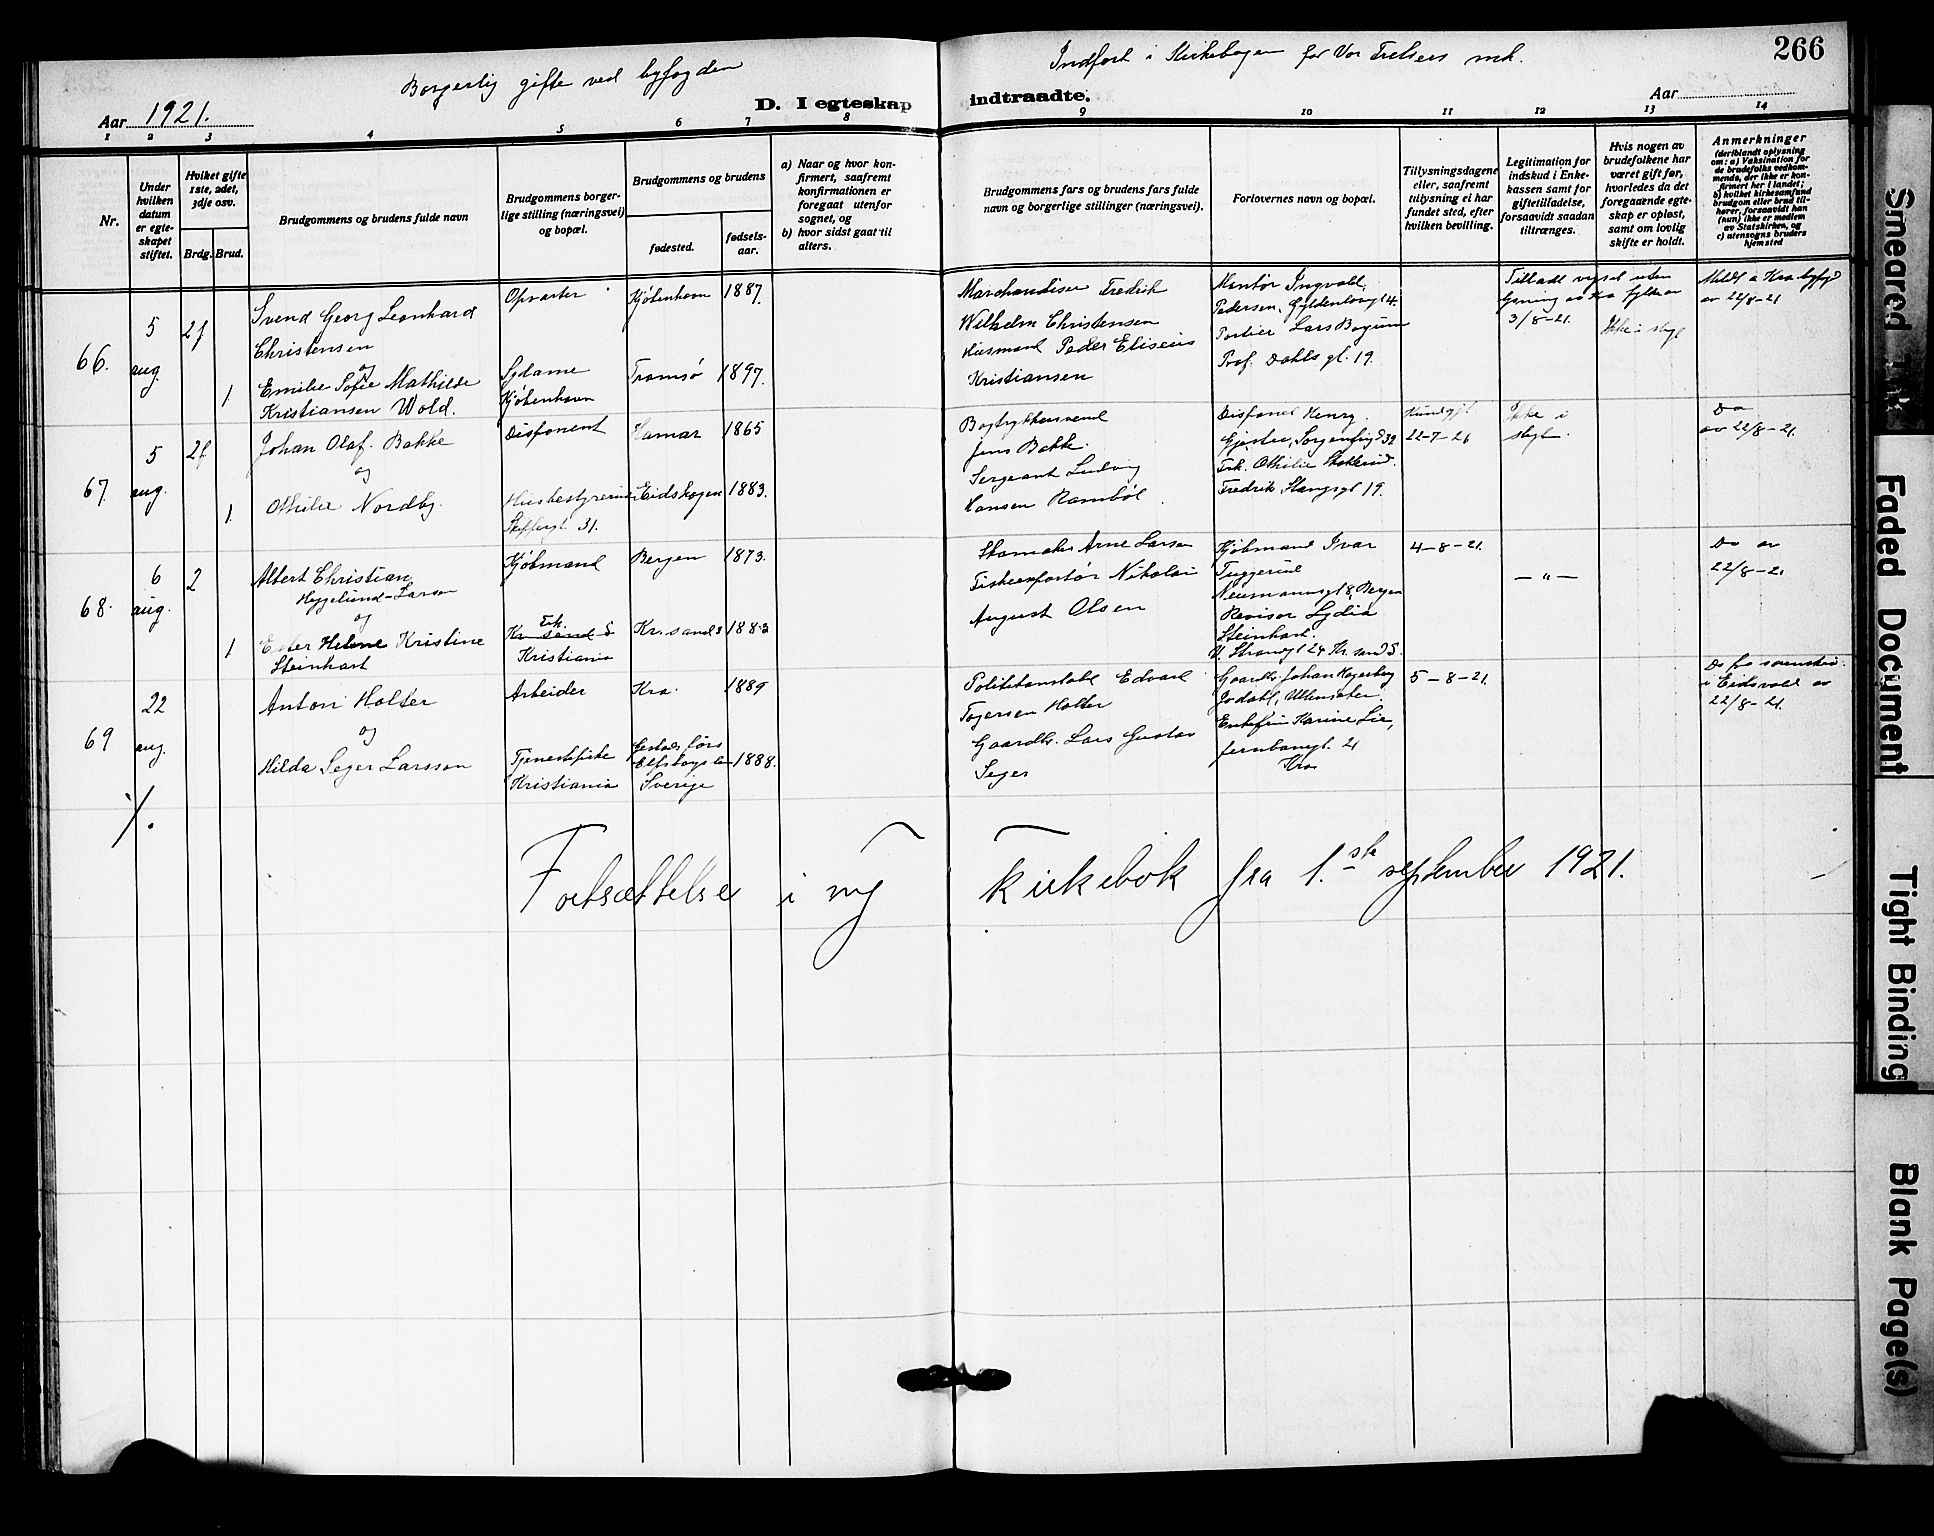 266
Borgerlig gifte ved byfogden
Indført i Kirkebogen for Vor Frelsers mh.
Aar 1921.
D. I egteskap indtraadte.
Aar
1 2 3 4 5 6 7 8 9 10 11 12 13 14
Nr.
Under hvilken datum er egteskapet stiftet.
Hvilket gifte 1ste, 2det, 3dje osv.
Brdg. Brud.
Brudgommens og brudens fulde navn
Brudgommens borgerlige stilling (næringsvei) og bopæl.
Brudgommens og brudens
fødested.
fødsels-aar.
a) Naar og hvor konfirmert, saafremt konfirmationen er foregaat utenfor sognet, og
b) hvor sidst gaat til alters.
Brudgommens fars og brudens fars fulde navn og borgerlige stillinger (næringsvei).
Forlovernes navn og bopæl.
Tillysningsdagene eller, saafremt tillysning ei har fundet sted, efter hvilken bevilling.
Legitimation for indskud i Enkekassen samt for giftetilladelse, forsaavidt saadan tiltrænges.
Hvis nogen av brudefolkene har været gift før, hvorledes da det foregaaende egteskap er opløst, samt om lovlig skifte er holdt.
Anmerkninger
(deriblandt oplysning om: a) Vaksination for de brudefolks vedkommende, der ikke er konfirmert her i landet; b) hvilket kirkesamfund brudgom eller brud tilhører, forsaavidt han (hun) ikke er medlem av Statskirken, og c) utensogns bruders hjemsted
66.
5 aug.
2f
1
Svend Georg Leonhard
Christensen
og
Emilie Sofie Mathilde
Kristiansen Wold.
Opvarter
Sydame
Kjøbenhavn
Kjøbenhavn 1887.
Tromsø 1897.
Marchandiser Fredrik
Wilhelm Christensen
Husmand Peder Eliseus
Kristiansen
Kontor Ingvald
Pedersen, Gyldenløvsgt 4.
Portier Lars
Prof. Dahls gt. 19.
Tilladt viet uten
lysning av Kra
3/8-21.
Ikke i slegt
Meldt a Kra byfgd
av 22/8-21
67
5 aug.
2f
1
Johan Olaf Bakke
og
Othilie Nordby
Disponent
Husbestyrerinde
31.
Hamar 1865
Eidskogen 1883.
Bogtrykkersvend
Jens Bakke.
Sergeant Ludvig
Hansen
Disponent Henry
Sorgenfrigt 32
Frk. Othilie
Fredrik Stangsgt 19.
22-7-21
Ikke i
slegt.
Do
av 22/8-21.
68.
6 aug.
2
1
Albert Christian
Heggelund-Larsen
og
Ester Helene Kristine
Steinhart
Kjøbmand
Frk.
Kr. sand S
Kristiania
Bergen 1873.
Kr.sand S 1883
Skomaker Arne Larsen
Fiskeexportør Nikolai
August Olsen
Kjøbmand Ivar
Neumannsgt 8, Bergen
Revisor Lydia
Steinhart.
V. Strandgt 24 Kr. sand S.
4-8-21.
— " —
Do av
22/8-21
69
22 aug.
Anton Holter
og
Hilda Seger Larsson
Arbeider
Tjenestepike
Kristiania
Kra. 1889
1888.
Sverige
Politikonstabel Edvard
Holter
Gaardbr. Lars Gustav
Seger
Gaardbr. Johan
Enkefru Karine Lie,
Jernbanegt. 21
Kra
5-8-21.
Do fra
i Eidsvold av
22/8-21.
Fortsættelse i ny kirkebok fra 1.ste september 1921.
Smeared Ink
Faded Document
Tight Binding
Blank Page(s)